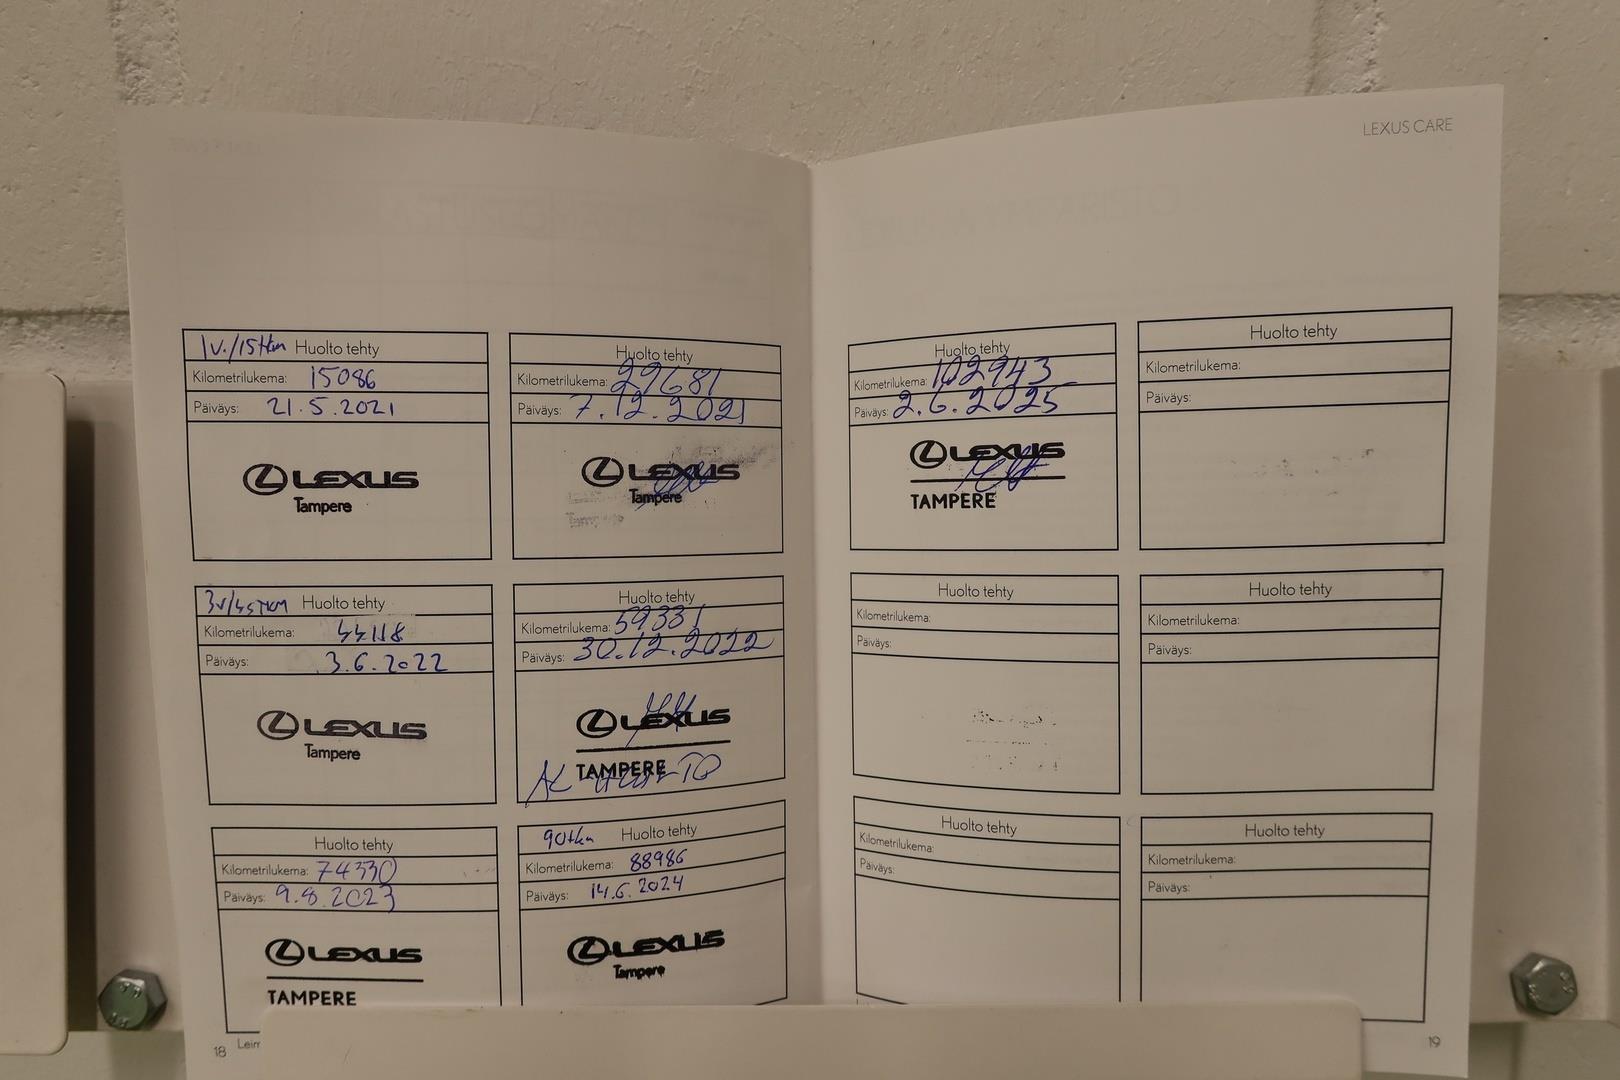 LEXUS CARE
1v./15tkm Huolto tehty
Kilometrilukema: 15086
Päiväys: 21.5.2021
LEXUS
Tampere
Huolto tehty
Kilometrilukema: 29681
Päiväys: 7.12.2021
LEXUS
Tampere
3v/45TKM Huolto tehty
Kilometrilukema: 44118
Päiväys: 3.6.2022
LEXUS
Tampere
Huolto tehty
Kilometrilukema: 59331
Päiväys: 30.12.2022
LEXUS
TAMPERE
Huolto tehty
Kilometrilukema: 74330
Päiväys: 9.8.2023
LEXUS
TAMPERE
90tkm Huolto tehty
Kilometrilukema: 88986
Päiväys: 14.6.2024
LEXUS
Tampere
18 Leim
Huolto tehty
Kilometrilukema: 102943
Päiväys: 2.6.2025
LEXUS
TAMPERE
Huolto tehty
Kilometrilukema:
Päiväys:
Huolto tehty
Kilometrilukema:
Päiväys:
Huolto tehty
Kilometrilukema:
Päiväys:
Huolto tehty
Kilometrilukema:
Päiväys:
Huolto tehty
Kilometrilukema:
Päiväys:
19